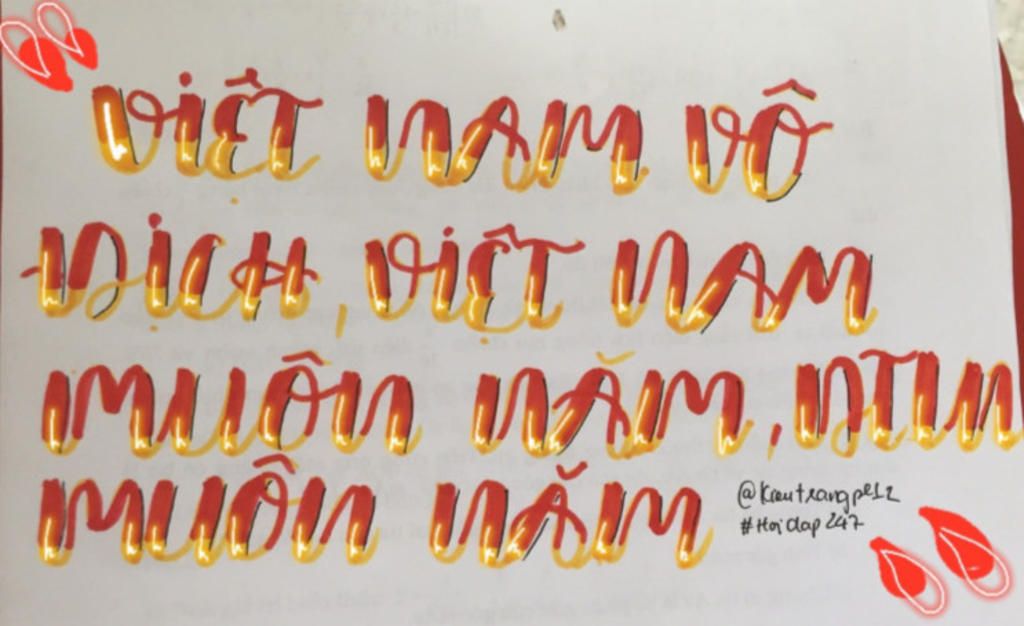 VIỆT NAM VÔ
ĐỊCH, VIỆT NAM
MUÔN NĂM, ĐTVN
MUÔN NĂM
@Kieutrangpe12
#Hoidap247